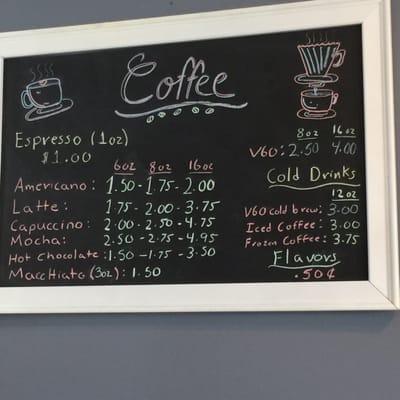 Coffee
Espresso (1oz)
$1.00
6oz 8oz 16oz
Americano: 1.50 - 1.75 - 2.00
Latte: 1.75 - 2.00 - 3.75
Capuccino: 2.00 - 2.50 - 4.75
Mocha: 2.50 - 2.75 - 4.95
Hot Chocolate: 1.50 - 1.75 - 3.50
Macchiato (3oz): 1.50
8oz 16oz
V60: 2.50 4.00
Cold Drinks
12oz
V60 cold brew: 3.00
Iced Coffee: 3.00
Frozen Coffee: 3.75
Flavors
.50¢